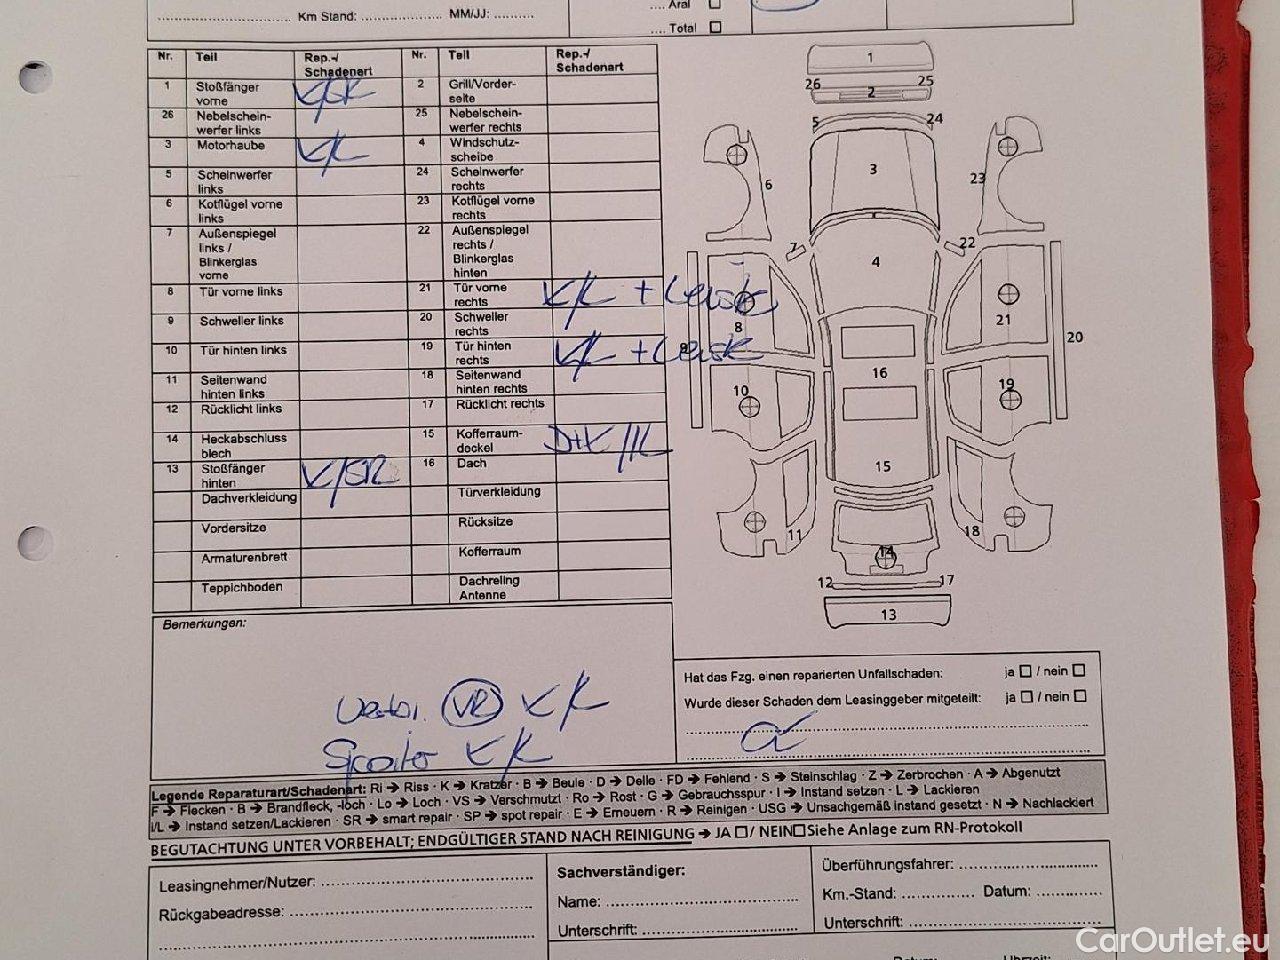 .... Aral
Km Stand: .................... MM/JJ: ..........
.... Total
Nr. Teil Rep.-/ Schadenart Nr. Teil Rep.-/ Schadenart
1 Stoßfänger vorne 2 Grill/Vorder-seite
26 Nebelschein-werfer links 25 Nebelschein-werfer rechts
3 Motorhaube K/L 4 Windschutz-scheibe
5 Scheinwerfer links 24 Scheinwerfer rechts
6 Kotflügel vorne links 23 Kotflügel vorne rechts
7 Außenspiegel links / Blinkerglas vorne 22 Außenspiegel rechts / Blinkerglas hinten
8 Tür vorne links 21 Tür vorne rechts K/L + Leiste
9 Schweller links 20 Schweller rechts
10 Tür hinten links 19 Tür hinten rechts K/L + Leiste
11 Seitenwand hinten links 18 Seitenwand hinten rechts
12 Rücklicht links 17 Rücklicht rechts
14 Heckabschluss blech 15 Kofferraum-deckel D+K /IL
13 Stoßfänger hinten K/SR 16 Dach
Dachverkleidung Türverkleidung
Vordersitze Rücksitze
Armaturenbrett Kofferraum
Teppichboden Dachreling Antenne
1
26 25
2
5 24
3
6 23
7 22
4
8 21
9 20
16
10 19
15
11 18
14
12 17
13
Bemerkungen:
VR K/L
Spoiler K/L
Hat das Fzg. einen reparierten Unfallschaden: ja / nein
Wurde dieser Schaden dem Leasinggeber mitgeteilt: ja / nein
Legende Reparaturart/Schadenart: Ri → Riss · K → Kratzer · B → Beule · D → Delle · FD → Fehlend · S → Steinschlag · Z → Zerbrochen · A → Abgenutzt
F → Flecken · B → Brandfleck, -loch · Lo → Loch · VS → Verschmutzt · Ro → Rost · G → Gebrauchsspur · I → Instand setzen · L → Lackieren
I/L → Instand setzen/Lackieren · SR → smart repair · SP → spot repair · E → Erneuern · R → Reinigen · USG → Unsachgemäß instand gesetzt · N → Nachlackiert
BEGUTACHTUNG UNTER VORBEHALT; ENDGÜLTIGER STAND NACH REINIGUNG → JA / NEIN Siehe Anlage zum RN-Protokoll
Leasingnehmer/Nutzer: ..............................
Rückgabeadresse: ..............................
Sachverständiger:
Name: ..............................
Unterschrift: ..............................
Überführungsfahrer: ..............................
Km.-Stand: ............... Datum: .............
Unterschrift: ..............................
CarOutlet.eu